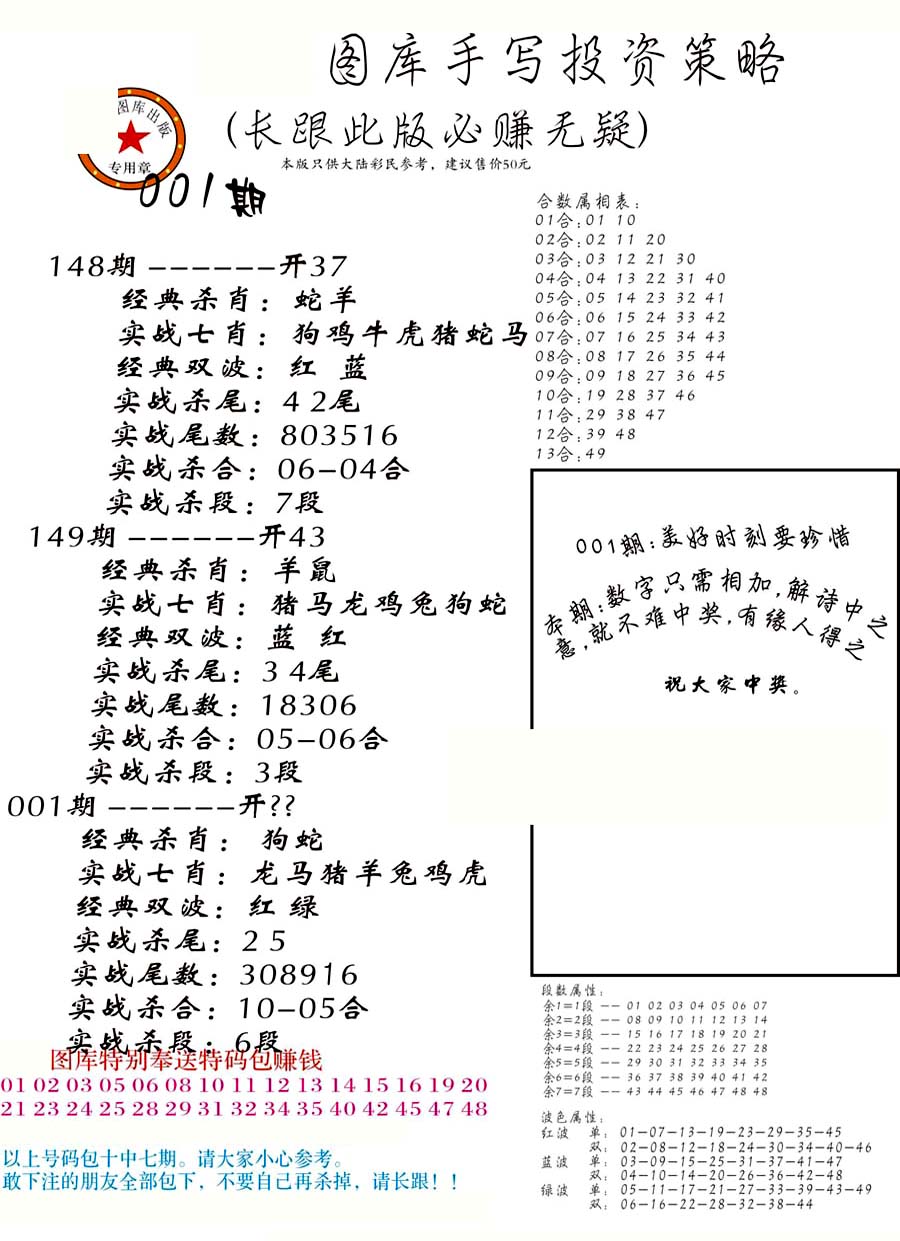 图库手写投资策略
(长跟此版必赚无疑)
本版只供大陆彩民参考，建议售价50元
图库出版
专用章
001期
148期 ------开37
经典杀肖：蛇羊
实战七肖：狗鸡牛虎猪蛇马
经典双波：红 蓝
实战杀尾：4 2尾
实战尾数：803516
实战杀合：06-04合
实战杀段：7段
149期 ------开43
经典杀肖：羊鼠
实战七肖：猪马龙鸡兔狗蛇
经典双波：蓝 红
实战杀尾：3 4尾
实战尾数：18306
实战杀合：05-06合
实战杀段：3段
001期 ------开??
经典杀肖：狗蛇
实战七肖：龙马猪羊兔鸡虎
经典双波：红 绿
实战杀尾：2 5
实战尾数：308916
实战杀合：10-05合
实战杀段：6段
图库特别奉送特码包赚钱
01 02 03 05 06 08 10 11 12 13 14 15 16 19 20
21 23 24 25 28 29 31 32 34 35 40 42 45 47 48
以上号码包十中七期。请大家小心参考。
敢下注的朋友全部包下，不要自己再杀掉，请长跟！！
合数属相表：
01合:01 10
02合:02 11 20
03合:03 12 21 30
04合:04 13 22 31 40
05合:05 14 23 32 41
06合:06 15 24 33 42
07合:07 16 25 34 43
08合:08 17 26 35 44
09合:09 18 27 36 45
10合:19 28 37 46
11合:29 38 47
12合:39 48
13合:49
001期:美好时刻要珍惜
本期:数字只需相加,解诗中之
意,就不难中奖,有缘人得之
祝大家中奖。
段数属性：
余1=1段 -- 01 02 03 04 05 06 07
余2=2段 -- 08 09 10 11 12 13 14
余3=3段 -- 15 16 17 18 19 20 21
余4=4段 -- 22 23 24 25 26 27 28
余5=5段 -- 29 30 31 32 33 34 35
余6=6段 -- 36 37 38 39 40 41 42
余7=7段 -- 43 44 45 46 47 48 48
波色属性：
红波 单：01-07-13-19-23-29-35-45
双：02-08-12-18-24-30-34-40-46
蓝波 单：03-09-15-25-31-37-41-47
双：04-10-14-20-26-36-42-48
绿波 单：05-11-17-21-27-33-39-43-49
双：06-16-22-28-32-38-44